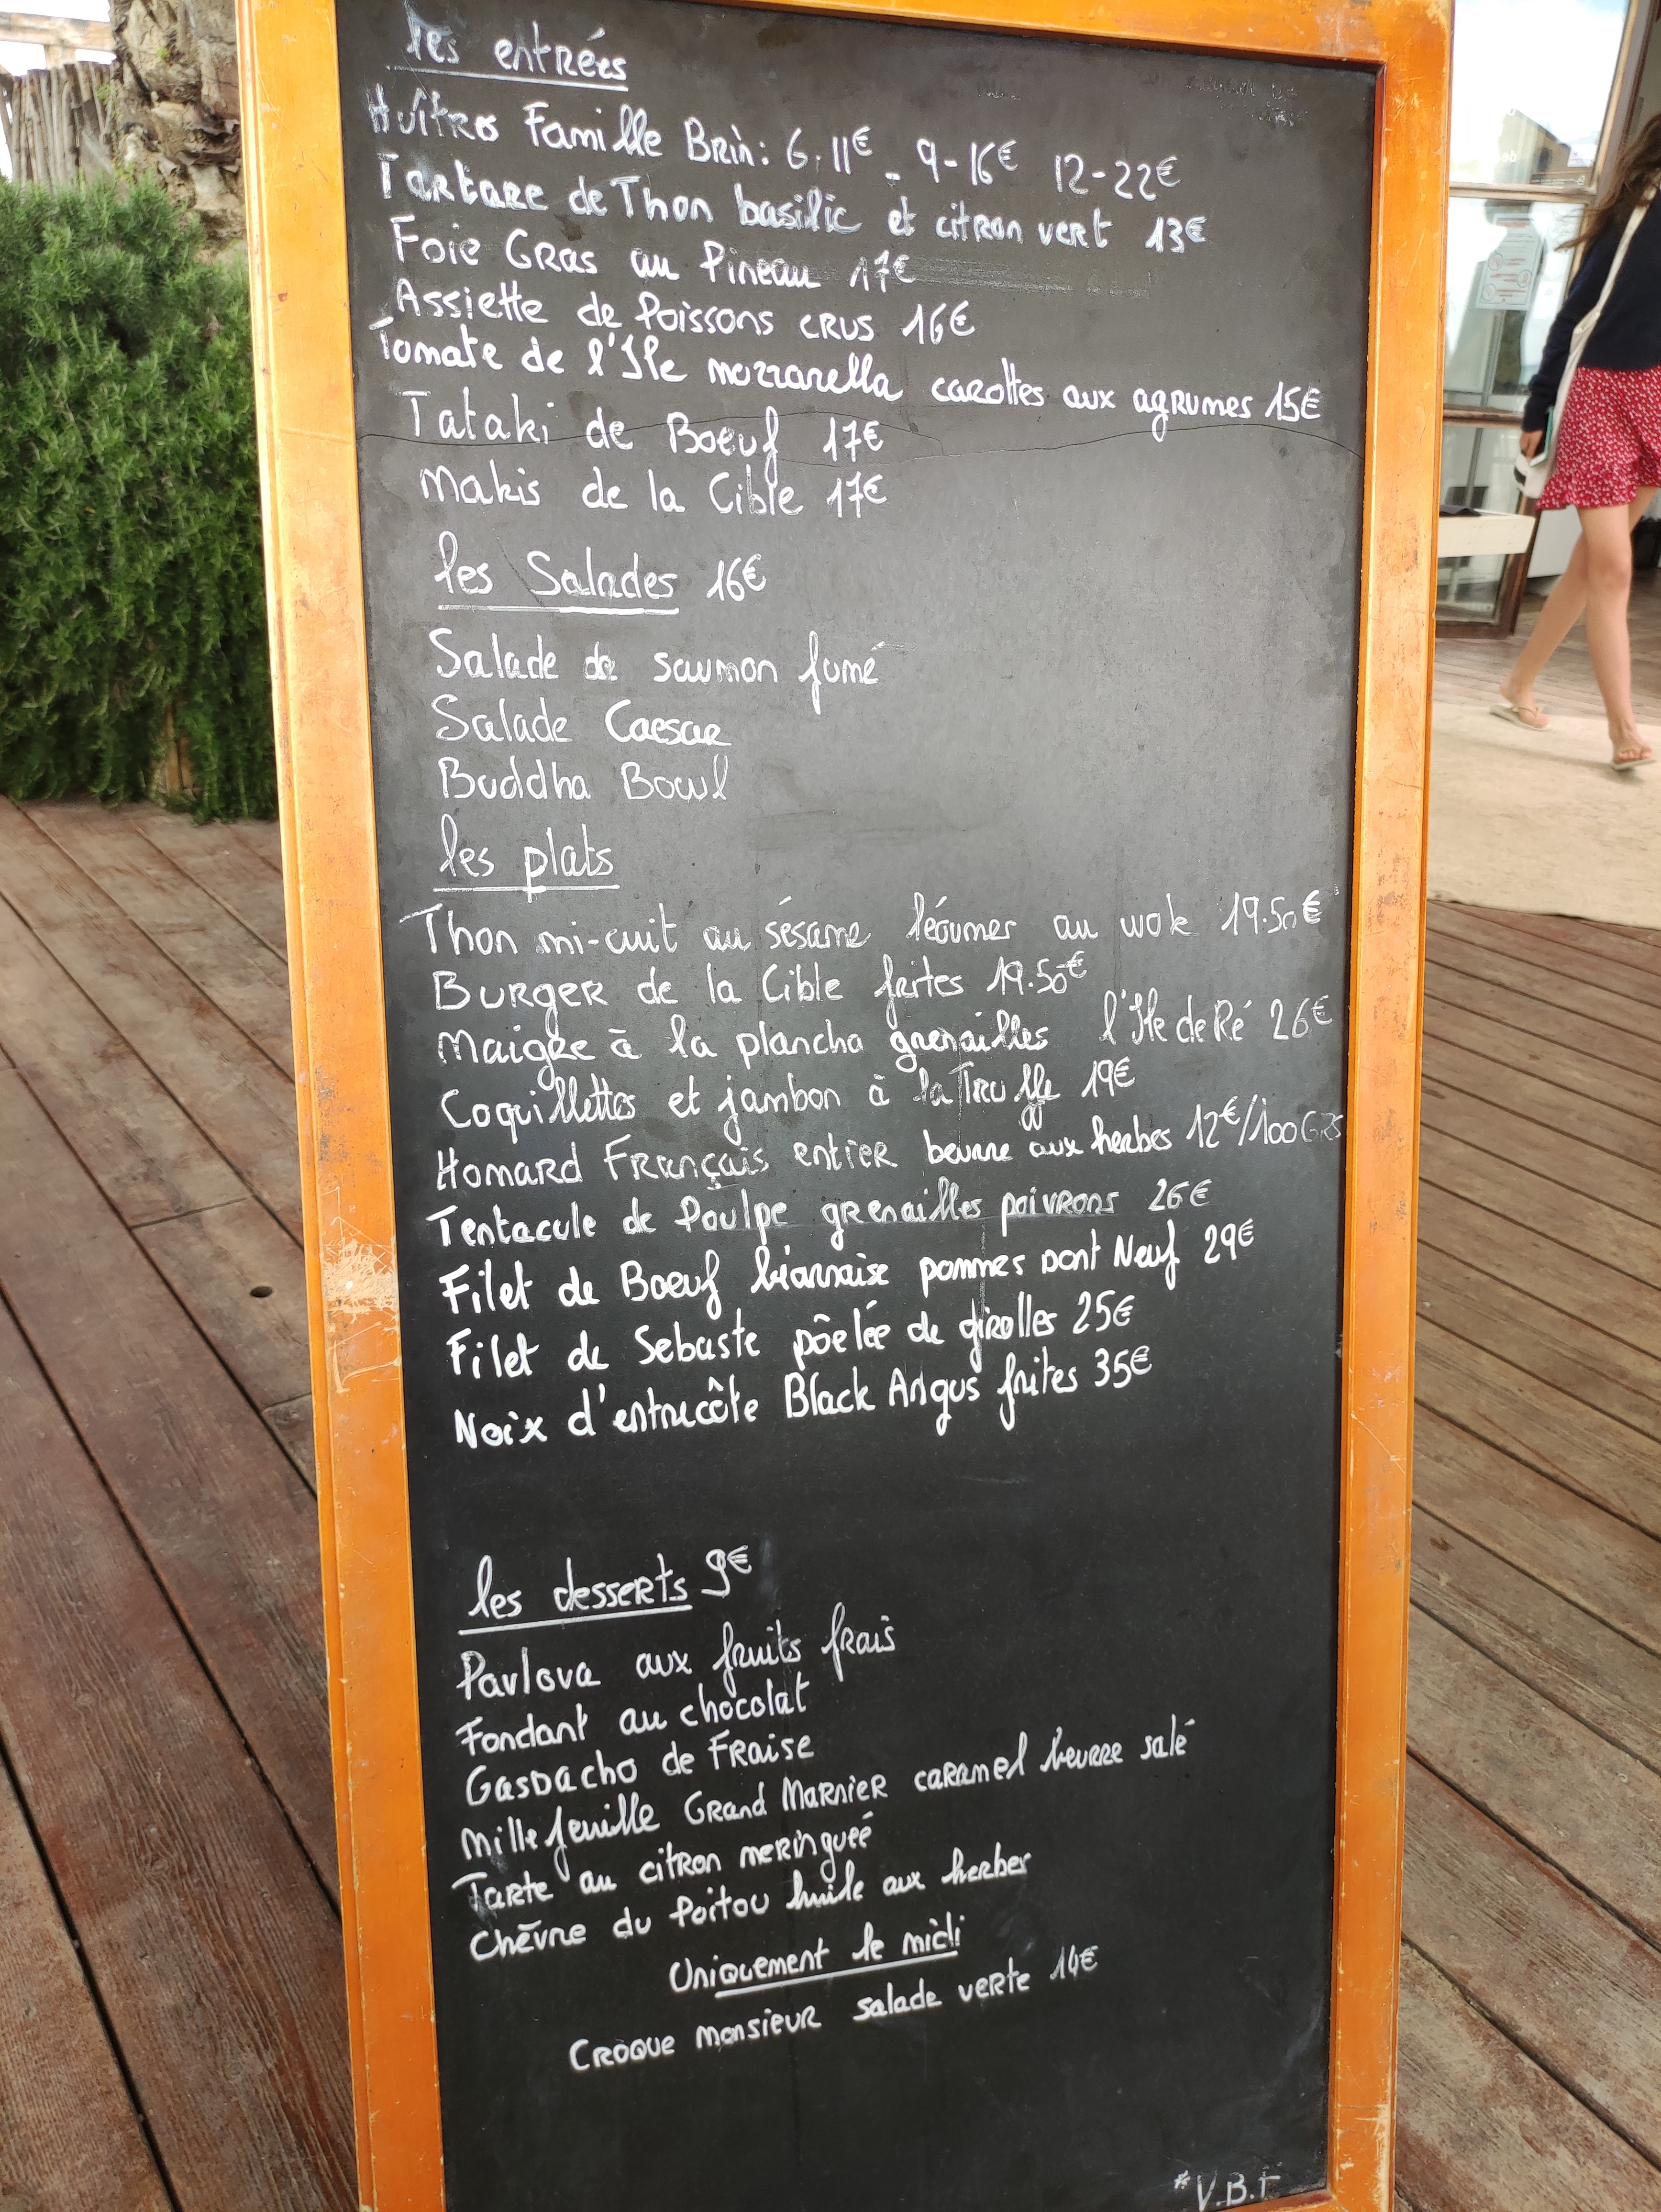 les entrées
Huîtres Famille Brin: 6.11€ - 9-16€ 12-22€
Tartare de Thon basilic et citron vert 13€
Foie Gras au Pineau 17€
Assiette de Poissons crus 16€
Tomate de l'Ile mozzarella carottes aux agrumes 15€
Tataki de Boeuf 17€
Makis de la Cible 17€
les Salades 16€
Salade de saumon fumé
Salade Caesar
Buddha Bowl
les plats
Thon mi-cuit au sésame légumes au wok 19.50€
Burger de la Cible frites 19.50€
Maigre à la plancha grenailles l'Ile de Ré 26€
Coquillettes et jambon à la Truffe 19€
Homard Français entier beurre aux herbes 12€/100GRS
Tentacule de Poulpe grenailles poivrons 26€
Filet de Boeuf béarnaise pommes Pont Neuf 29€
Filet de Sebaste pôelée de girolles 25€
Noix d'entrecôte Black Angus frites 35€
les desserts 9€
Pavlova aux fruits frais
Fondant au chocolat
Gaspacho de Fraise
Mille feuille Grand Marnier caramel beurre salé
Tarte au citron meringuée
Chèvre du Poitou huile aux herbes
Uniquement le midi
Croque monsieur salade verte 14€
*V.B.F